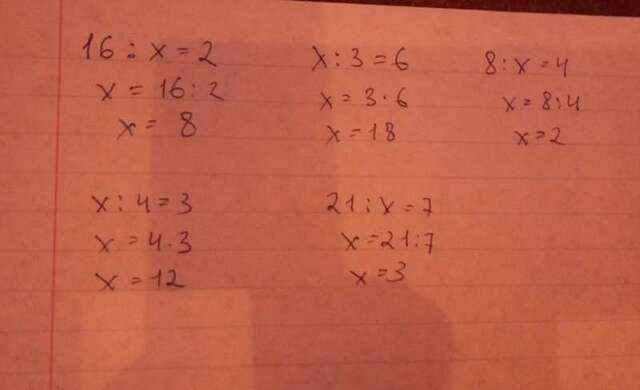 16 : x = 2
x = 16 : 2
x = 8
x : 3 = 6
x = 3 · 6
x = 18
8 : x = 4
x = 8 : 4
x = 2
x : 4 = 3
x = 4 · 3
x = 12
21 : x = 7
x = 21 : 7
x = 3